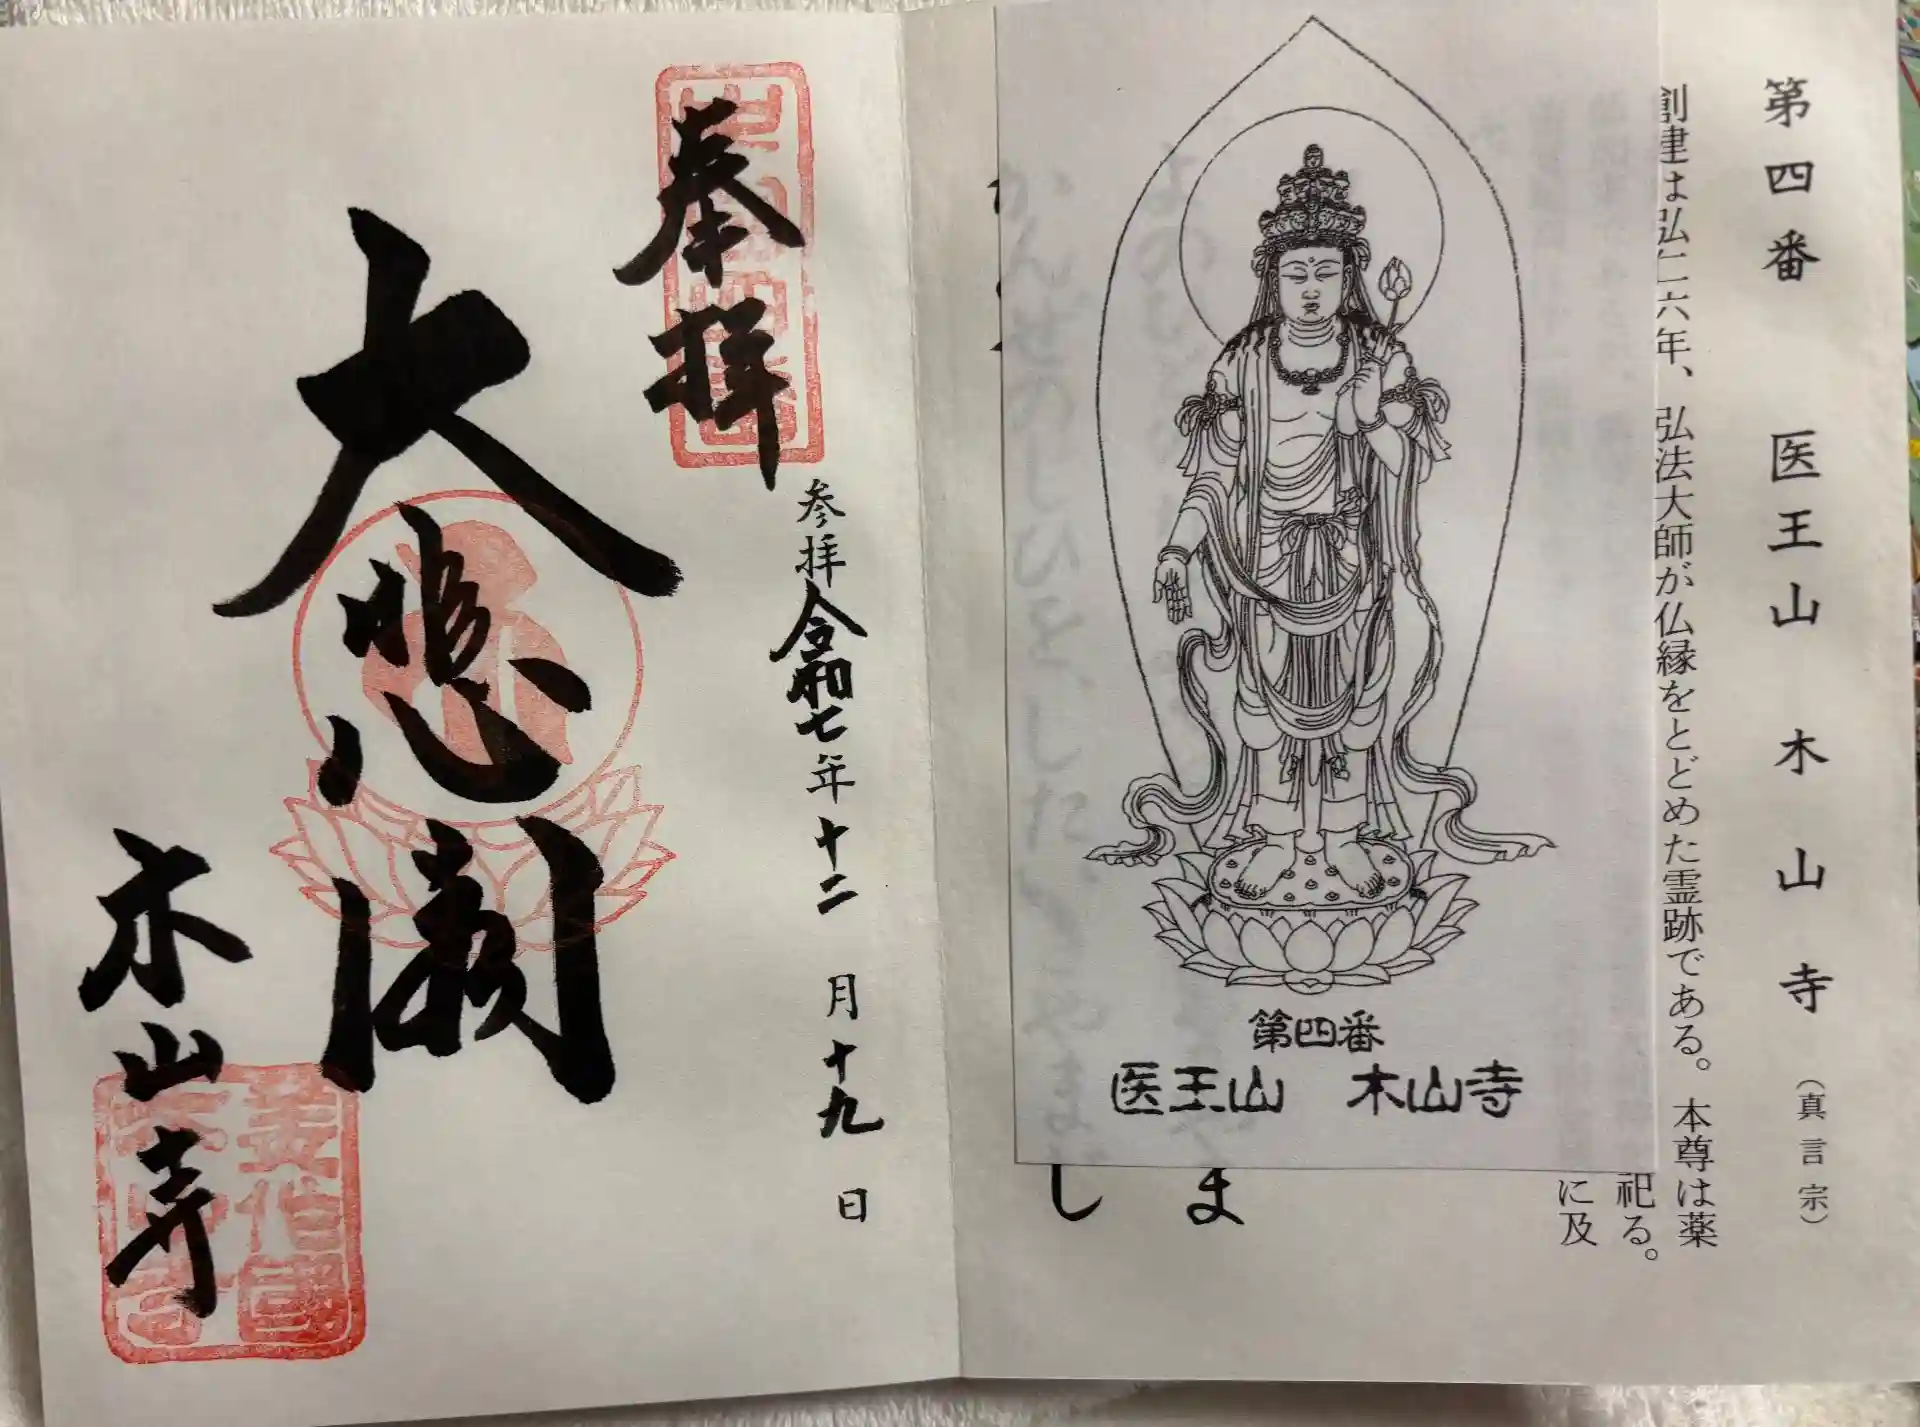 第四番 医王山 木山寺 (真言宗)
創建は弘仁六年、弘法大師が仏縁をとどめた霊跡である。本尊は薬
祀る。
に及
ま
し
第四番
医王山 木山寺
奉拝
参拝令和七年十二月十九日
大悲閣
木山寺
美作國
木山寺